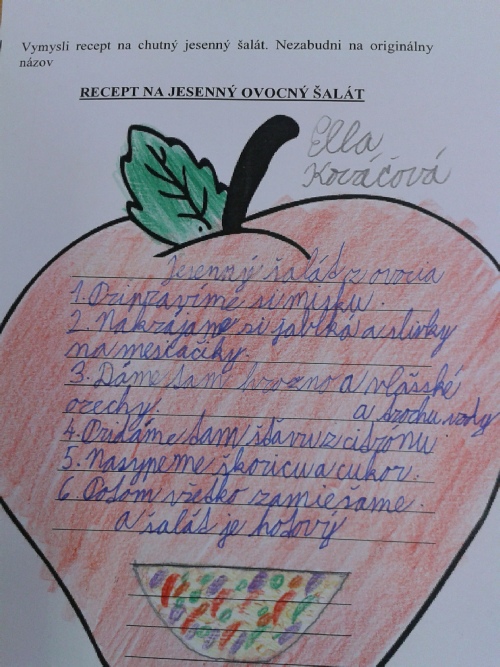 Vymysli recept na chutný jesenný šalát. Nezabudni na originálny
názov
RECEPT NA JESENNÝ OVOCNÝ ŠALÁT
Ella
Kováčová
Jesenný šalát z ovocia
1. Pripravíme si misku.
2. Nakrájame si jablká a slivky
na mesiačiky.
3. Dáme tam hrozno a vlašské
orechy. a trochu vody
4. Pridáme tam šťavu z citrónu
5. Nasypeme škoricu a cukor.
6. Potom všetko zamiešame.
a šalát je hotový